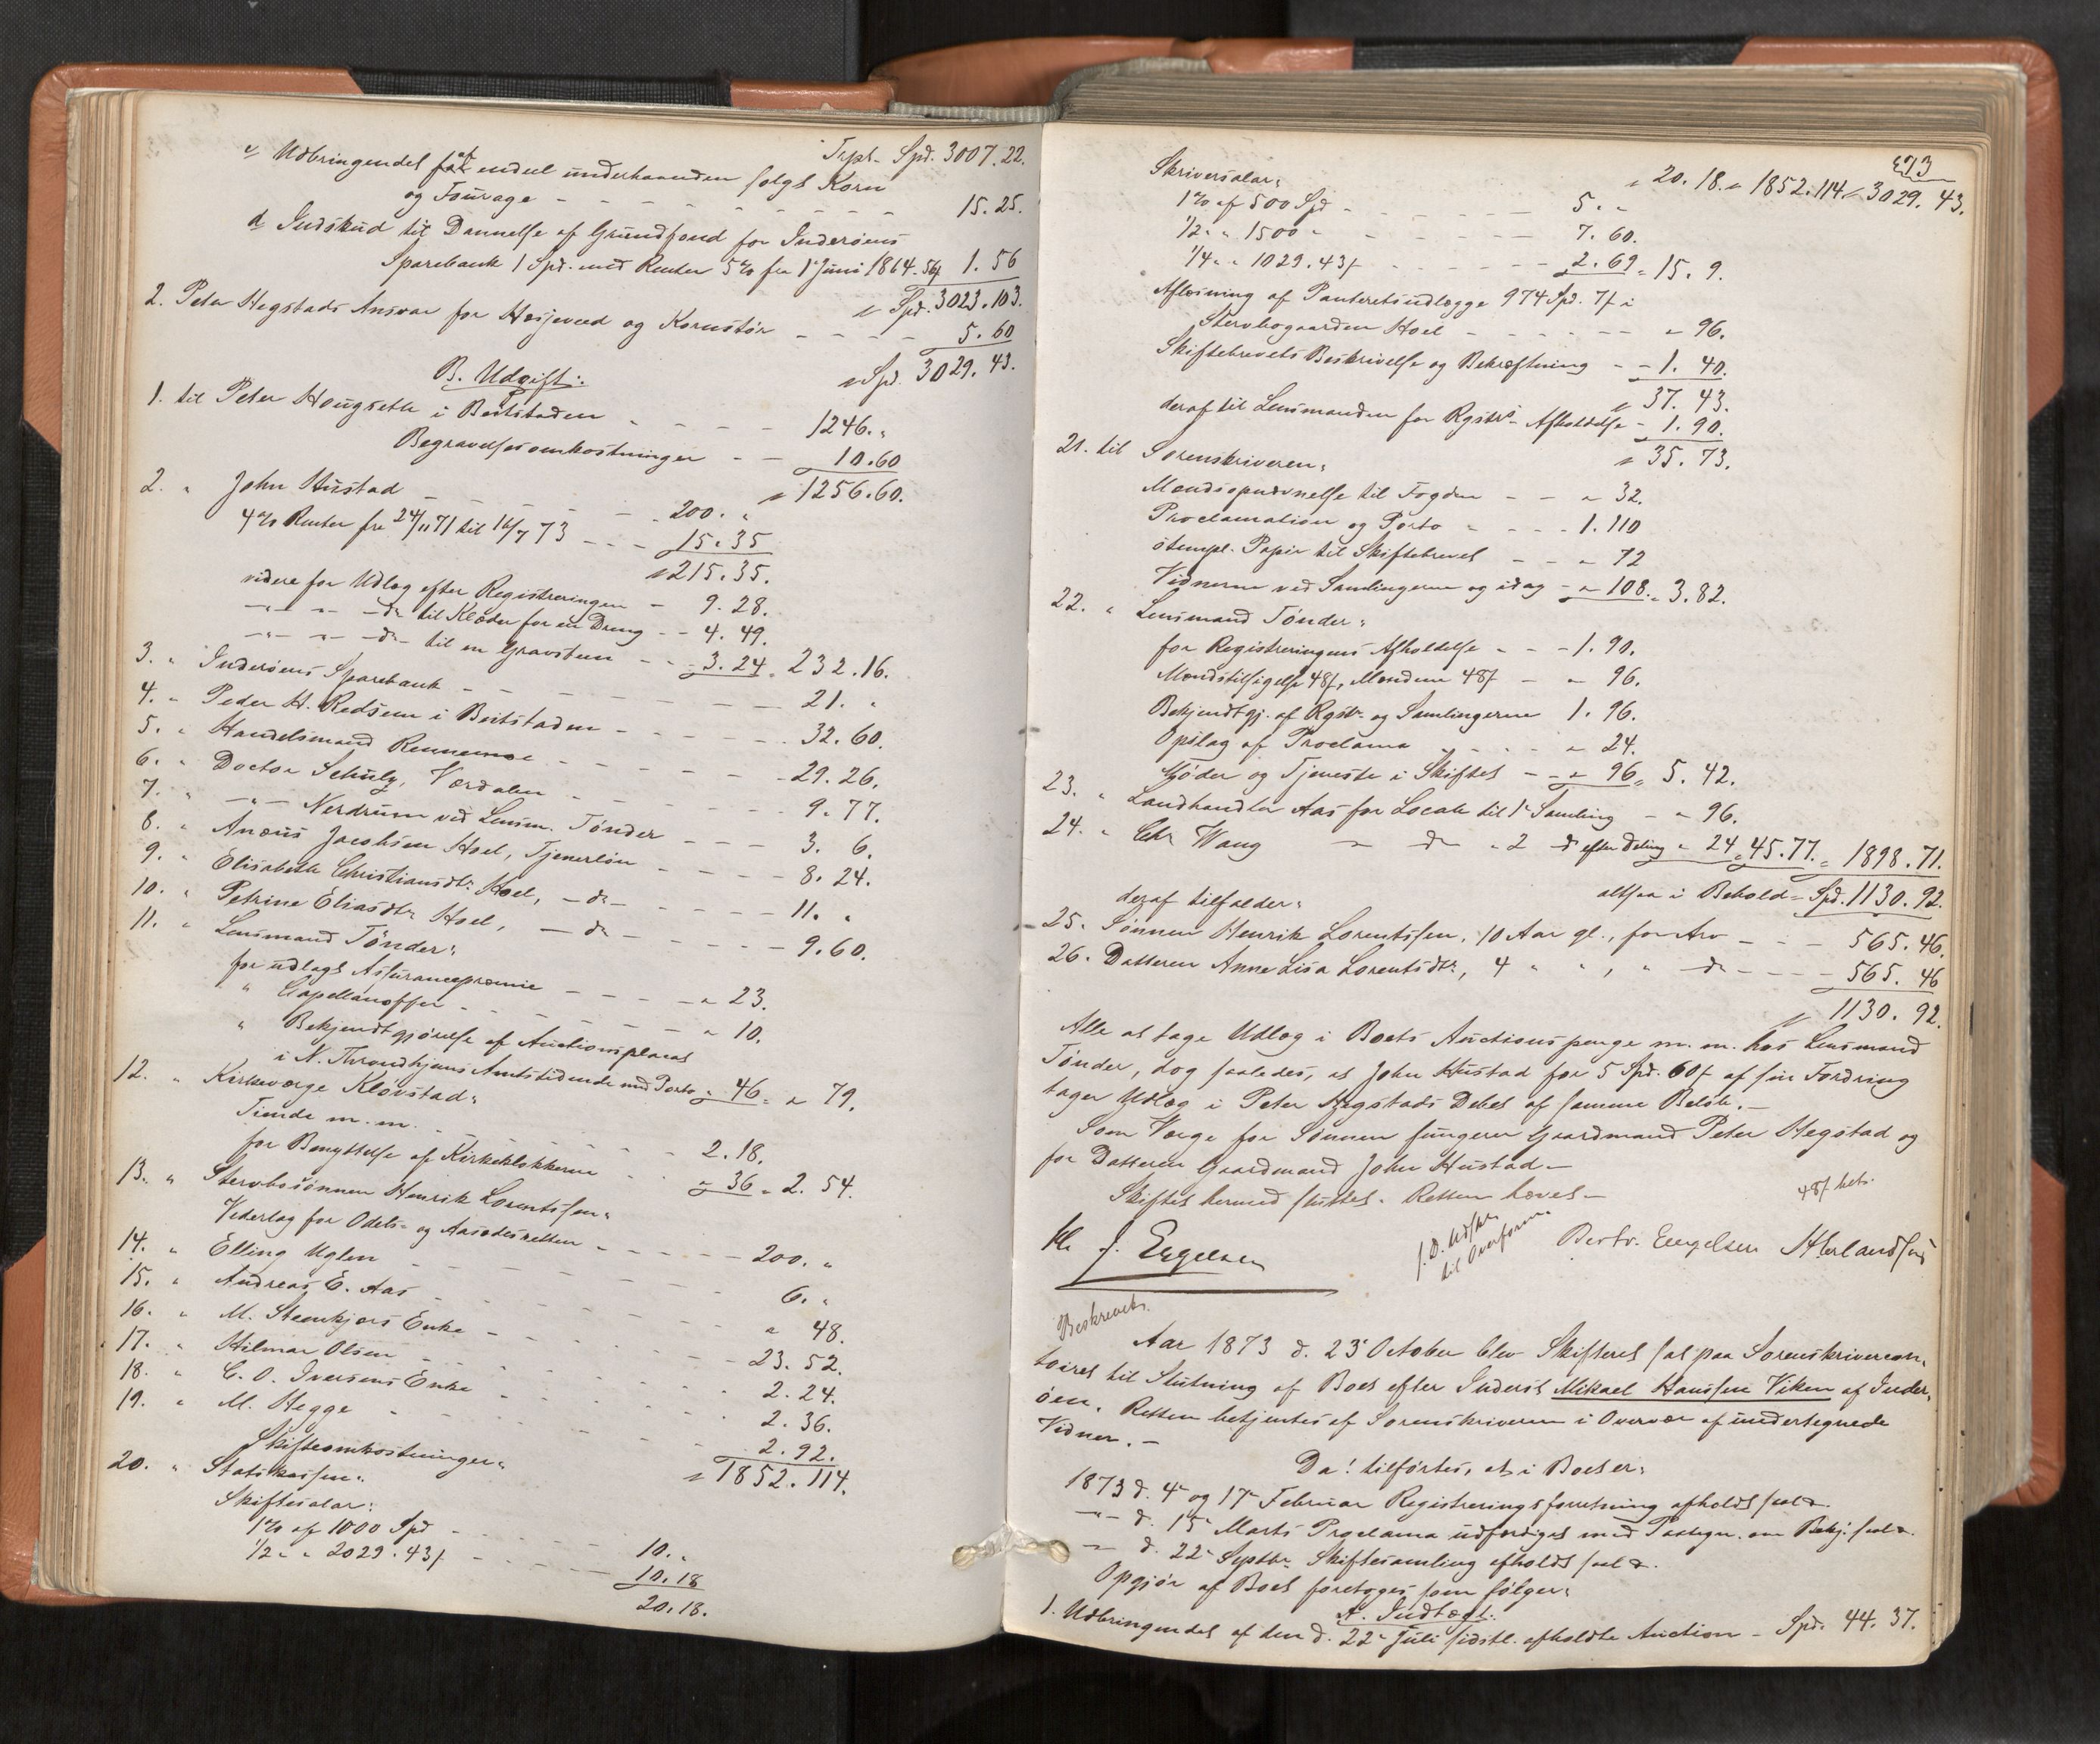 Trspt. Spd. 3007.22.
c, Udbringendet for endeel underhaanden solgt Korn
og Fourage - - - - 15.25.
d, Indskud til Dannelse af Grundfond for Inderøens
Sparebank 1 Spd. med Renter 5% fra 1 Juni 1864 1.56
" Spd. 3023.103.
2. Peter Hegstads Ansvar for Hesjeved og Kornstør - - - 5.60
" Spd. 3029.43.
B. Udgift:
1. til Peter Hougseth i Beitstaden - - - 1246. "
Begravelsesomkostninger - - 10.60
" 1256.60.
2. " John Hustad - - - 200. "
4% Renter fra 24/11 71 til 16/7 73 - - - 15.35
" 215.35.
videre for Udlæg efter Registreringen - 9.28.
-"- -"- -do- til Klæder for en Dreng - - 4.49.
-"- -"- -do- til en Gravsteen - - 3.24 = 232.16.
3. " Inderøens Sparebank - - - 21. "
4. " Peder H. Redsem i Beitstaden - - - 32.60.
5. " Handelsmand Rennemoe - - - 29.26.
6. " Doctor Schulz, Værdalen - - - 9.77.
7. " -"- Nerdrum ved Lensm. Tønder - - - 3. 6.
8. " Anæus Jacobsen Hoel, Tjenerløn - - - 8.24.
9. " Elisabeth Christiansdtr. Hoel, -do- - - - 11. "
10. " Petrine Eliasdtr. Hoel, -do- - - - 9.60.
11. " Lensmand Tønder:
for udlagt Assurancepræmie - - - " 23.
" Capellanoffer - - - " 10.
" Bekjendtgjørelse af Auctionsplacat
i N. Throndhjems Amtstidende med Porto " 46 = " 79.
12. " Kirkeværge Kløvstad:
Tiende m. m. - - - 2.18.
for Benyttelse af Kirkeklokkerne - - " 36 = 2.54.
13. " Stervbosønnen Henrik Lorentssen:
Vederlag for Odels- og Aasædesretten - - - 200. "
14. " Elling Uglen - - - 6. "
15. " Andreas E. Aas - - - " 48.
16. " M. Steenkjærs Enke - - - 23.52.
17. " Hilmar Olsen - - - 2.24.
18. " C. O. Iversens Enke - - - 2.36.
19. " M. Hegge - - - 2.92.
" 1852.114.
Skifteomkostninger:
20. " Statskassen:
Skiftesalar:
1% af 1000 Spd - - - 10. "
1/2 " " 2029.43 - - - 10.18
20.18.
" 20.18. " 1852.114. " 3029.43.
Skriversalar:
1% af 500 Spd - - - 5. "
1/2 " " 1500 " - - - 7.60.
1/4 " " 1029.43 - - - 2.69 = 15.9.
Aflæsning af Panteretsudlægge 974 Spd. 7 i
Stervbogaarden Hoel - - - " 96.
Skiftebrevets Beskrivelse og Bekræftning - - 1.40.
" 37.43.
deraf til Lensmanden for Rgstrs Afholdelse - 1.90.
" 35.73.
21. til Sorenskriveren:
Mændsopnævnelse til Fogden - - " 32.
Proclamation og Porto - - - 1.110
stempl. Papir til Skiftebrevet - - " 72
Vidnerne ved Samlingerne og idag - " 108 = 3.82.
22. " Lensmand Tønder:
for Registreringens Afholdelse - - - 1.90.
Mændstilsigelse 48, Mændene 48 - " 96.
Bekjendtgj. af Rgstr. og Samlingerne 1.96.
Opslag af Proclama - - - " 24.
Møder og Tjeneste i Skiftet - - " 96 = 5.42.
23. " Landhandler Aas for Locale til 1 Samling - " 96.
24. " Chr Wang " do " 2 do efter Deling " 24 = 45.77. = 1898.71.
altsaa i Behold = Spd. 1130.92.
deraf tilfalder:
25. Sønnen Henrik Lorentssen, 10 Aar gl., for Arv - - - 565.46.
26. Datteren Anne Lisa Lorentsdtr., 4 " " , " do - - - 565.46
" 1130.92.
Alle at tage Udlæg i Boets Auctionspenge m. m. hos Lensmand
Tønder, dog saaledes, at John Hustad for 5 Spd. 60 af sin Fordring
tager Udlæg i Peter Hegstads Debet af samme Beløb. -
Som Værge for Sønnen fungerer Gaardmand Peter Hegstad og
for Datteren Gaardmand John Hustad -
Skiftet hermed sluttet. Retten hævet -
48 bet.
J. Engelsen
til Overform
Bertr. Engelsen
Beskrevet.
Aar 1873 d. 23 October blev Skifteret sat paa Sorenskrivercon-
toiret til Slutning af Boet efter Inderst Mikael Hanssen Viken af Inder-
øen. Retten betjentes af Sorenskriveren i Overvær af undertegnede
Vidner. -
Da! tilførtes, at i Boet er:
1873 d. 4 og 17 Februar Registreringsforretning afholdt
-"- d. 15 Marts Proclama udfærdiget med Paategn. om Bekj.
-"- d. 22 Septbr Skiftesamling afholdt
Opgjør af Boet foretoges som følger:
A. Indtægt:
1. Udbringendet af den d. 22 Juli sidstl. afholdte Auction - Spd. 44.37.